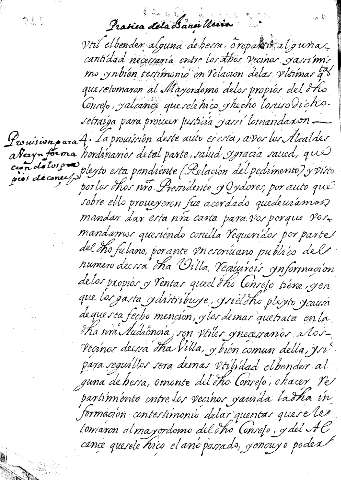 Pratica de la Chanci lleria
Util el bender alguna de hessa, o repartir, alguna
cantidad necesaria entre los dhos vecinos, y assi mis
mo, ynbien testimonio en relacion de las Ultimas qtas
que se tomaron al Mayordomo de los propios del dho
Consejo, y alcançe que se le hiço, y hecho lo susodicho
se traiga para proueer justicia y assi lo mandaron
Provision para
aReçiu ynforma
çion de los pro
pios de consejo
4. La provision deste auto es esta; a vos los Alcaldes
hordinarios de tal parte, salud, y gracia salud, que
pleyto esta pendiente (Relacion del pedimento) y visto
por los dhos nro Presidente y oydores, por auto que
sobre ello proueyeron fue acordado que deuiamos
mandar dar esta nra carta para vos por que vos
mandamos que siendo con ella Requeridos por parte
del dho fulano, por ante un escriuano publico del
numero dessa dha Villa, Reçiuais ynformaçion
de los propios y Rentas que el dho Consejo tiene, y en
que los gasta, y distribuye, y si el dho pleyto y causa
de que se a fecho mençion, y los demas que trata en la
dha nra Audiençia, son utiles y neçesarios a los
vecinos dessa dha Villa, y bien comun della, y si
para seguillos sera de mas utilidad el bender al
guna de hessa, o monte del dho Consejo, o hacer Re
partimiento entre los vecinos y auida la dha in
formaçion con testimonio de las quentas que se le
tomaron al mayordomo del dho Consejo, y del Al
cançe que se le hiço el año passado, y en cuyo poder